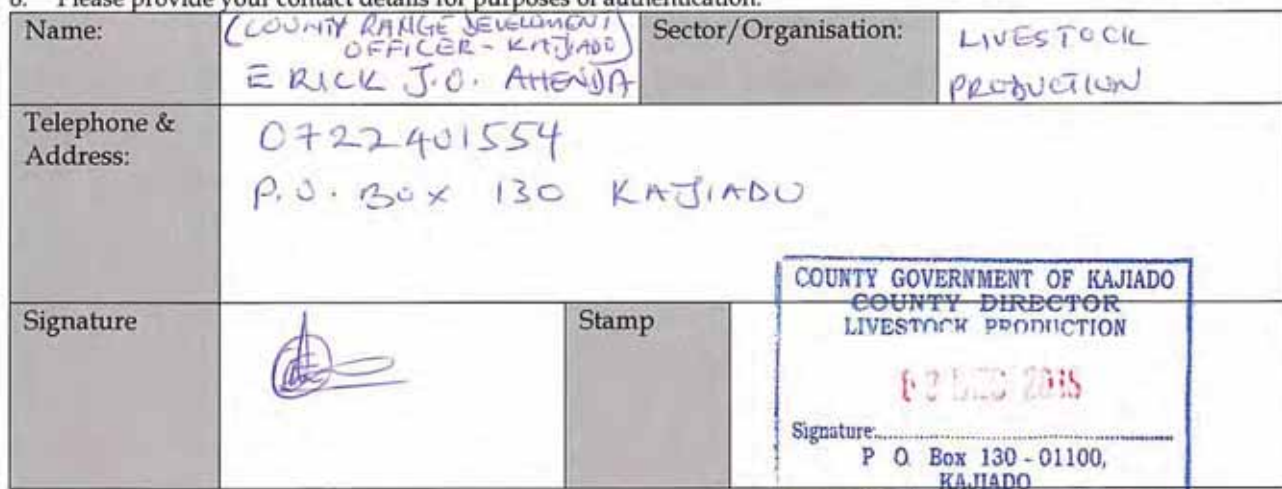 Please provide your contact details for purposes of authentication.
Name:
(COUNTY RANGE DEVELOPMENT
OFFICER - KAJIADO)
ERICK J.O. AHENDA
Sector/Organisation:
LIVESTOCK
PRODUCTION
Telephone &
Address:
0722401554
P.O. BOX 130 KAJIADO
Signature
Stamp
COUNTY GOVERNMENT OF KAJIADO
COUNTY DIRECTOR
LIVESTOCK PRODUCTION
DEC
Signature
P O. Box 130 - 01100,
KAJIADO